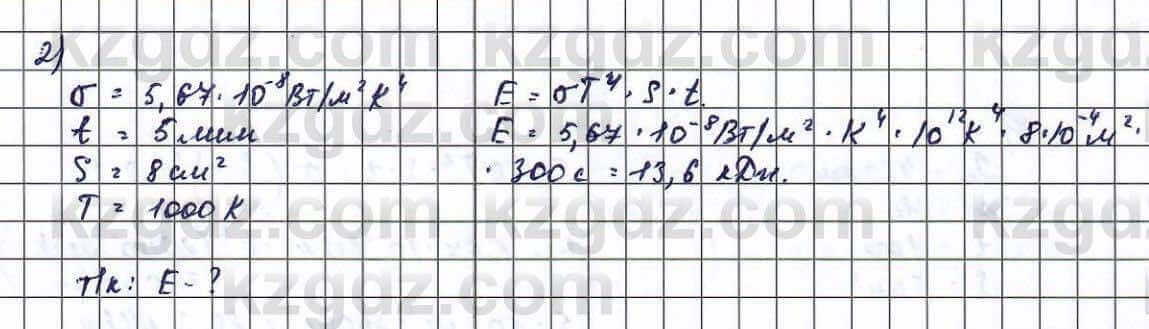 kzgdz.com kzgdz.com
2)
σ = 5,67 · 10⁻⁸ Вт/м² К⁴
t = 5 мин
S = 8 см²
T = 1000 К
Т/к: E - ?
E = σT⁴ · S · t.
E = 5,67 · 10⁻⁸ Вт/м² · К⁴ · 10¹² К⁴ · 8 · 10⁻⁴ м² ·
· 300 с = 13,6 кДж.
kzgdz.com kzgdz.com
kzgdz.com kzgdz.com
kzgdz.com kzgdz.com